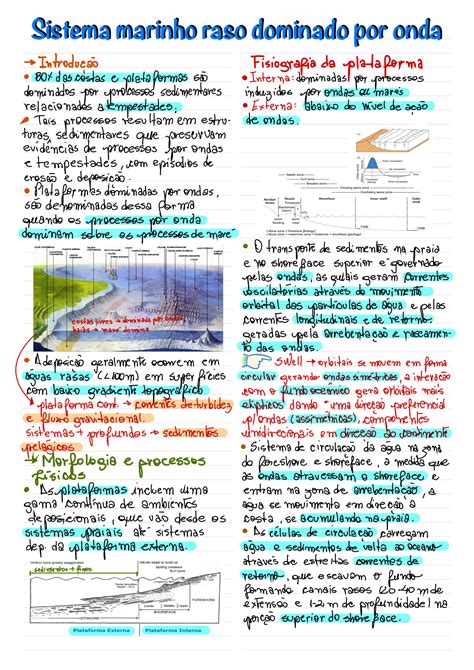 Sistema marinho raso dominado por onda
→ Introdução
• 80% das costas e plataformas são
dominados por processos sedimentares
relacionados a tempestades.
→ Tais processos resultam em estru-
turas sedimentares que preservam
evidências de processos por ondas
e tempestades, com episódios de
erosão e deposição.
• Plataformas dominadas por ondas,
são denominadas dessa forma
quando os processos por onda
dominam sobre os processos de maré
costas livres → dominada por ondas
baías → "maré" domina
• A deposição geralmente ocorrem em
águas rasas (<100m) em superfícies
com baixo gradiente topográfico
→ plataforma cont. → correntes de turbidez
e fluxo gravitacional.
sistemas + profundos → sedimentos
pelágicos
→ Morfologia e processos
físicos
• As plataformas incluem uma
gama contínua de ambientes
deposicionais, que vão desde os
sistemas praiais até sistemas
dep. da plataforma externa.
sedimentos + finos
OFFSHORE
SHOREFACE
FORESHORE
Lower
Middle
Upper
Plataforma Externa
Plataforma Interna
Fisiografia da plataforma
• Interna: dominadas por processos
induzidos por ondas ou marés
• Externa: abaixo do nível de ação
de ondas.
• O transporte de sedimentos na praia
e no shoreface superior é governado
pelas ondas, as quais geram correntes
oscilatórias através do movimento
orbital das partículas de água e pelas
correntes longitudinais e de retorno
geradas pela arrebentação e espraiamen-
to das ondas.
Swell → orbitais se movem em forma
circular gerando ondas simétricas, a interação
com o fundo oceânico gera orbitais mais
elípticos dando uma direção preferencial
p/ ondas (assimétricas), componentes
unidirecionais em direção ao continente
• Sistema de circulação da água na zona
do foreshore e shoreface, a medida que
as ondas atravessam o shoreface e
entram na zona de arrebentação, a
água se movimenta em direção à
costa, se acumulando na praia.
• As células de circulação carregam
água e sedimentos de volta ao oceano
através de estreitas correntes de
retorno, que escavam o fundo
formando canais rasos (20-40m de
extensão e 1-2m de profundidade) na
porção superior do shoreface.